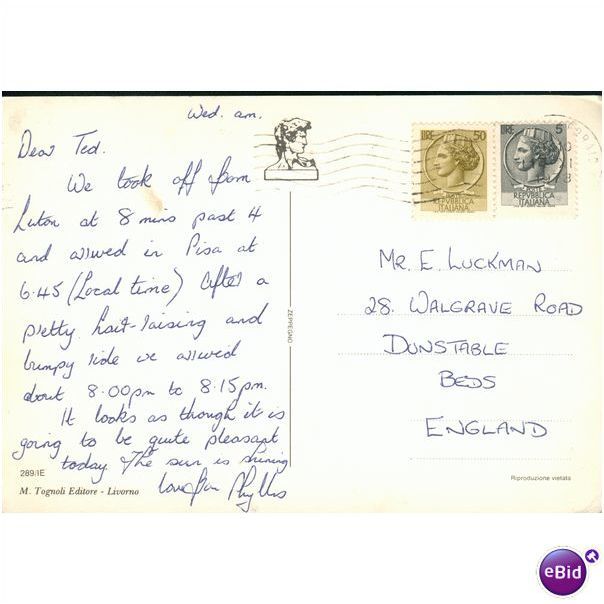 Wed. am.
Dear Ted.
We took off from
Luton at 8 mins past 4
and arrived in Pisa at
6.45 (Local time) After a
pretty hair-raising and
bumpy ride we arrived
about 8.00pm to 8.15pm.
It looks as though it is
going to be quite pleasant
today. The sun is shining
love from Phyllis
289/IE
M. Tognoli Editore - Livorno
ZEPPEGNO
LIRE 50
POSTE
REPVBBLICA
ITALIANA
LIRE 5
POSTE
REPVBBLICA
ITALIANA
MR. E. LUCKMAN
28. WALGRAVE ROAD
DUNSTABLE
BEDS
ENGLAND
Riproduzione vietata
eBid